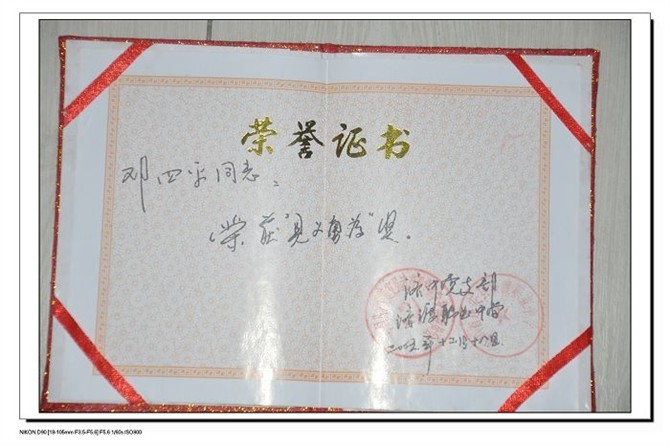 荣誉证书
邓四平同志:
荣获"见义勇为"奖.
党支部
职业中学
十二月十八日
NIKON D90 [18-105mm F3.5-F5.6] F5.6 1/60s ISO900